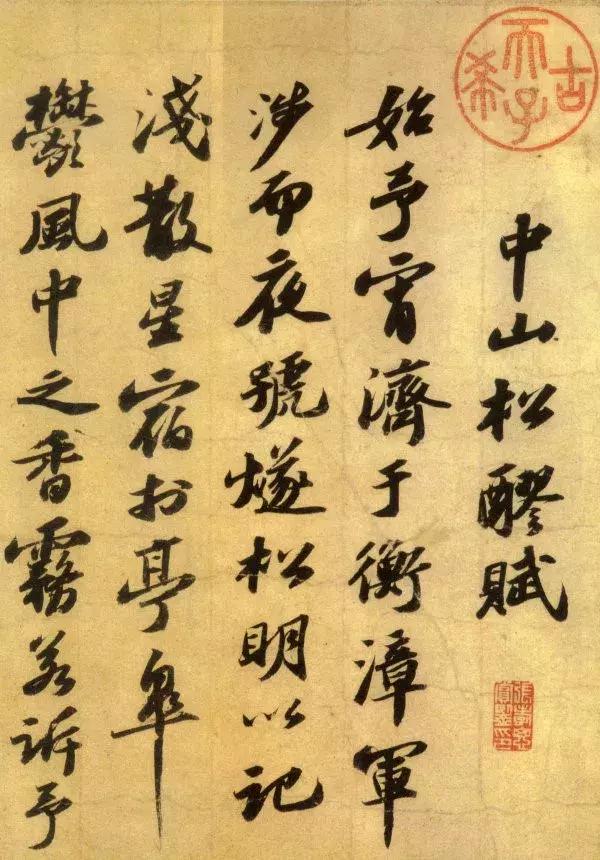 中山松醪賦
始予宵濟于衡漳軍
涉而夜號燧松明以記
淺散星宿於亭皋
鬱風中之香霧若訴予
古希天子